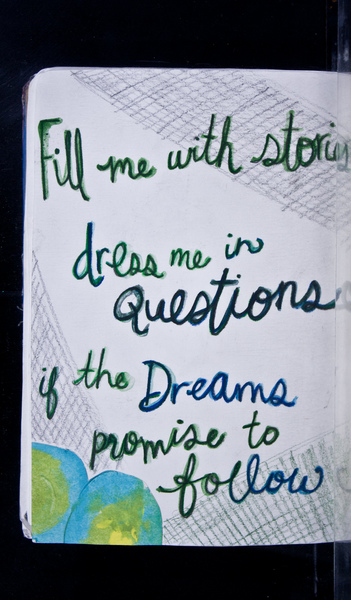 Fill me with stories
dress me in
Questions
if the Dreams
promise to
follow